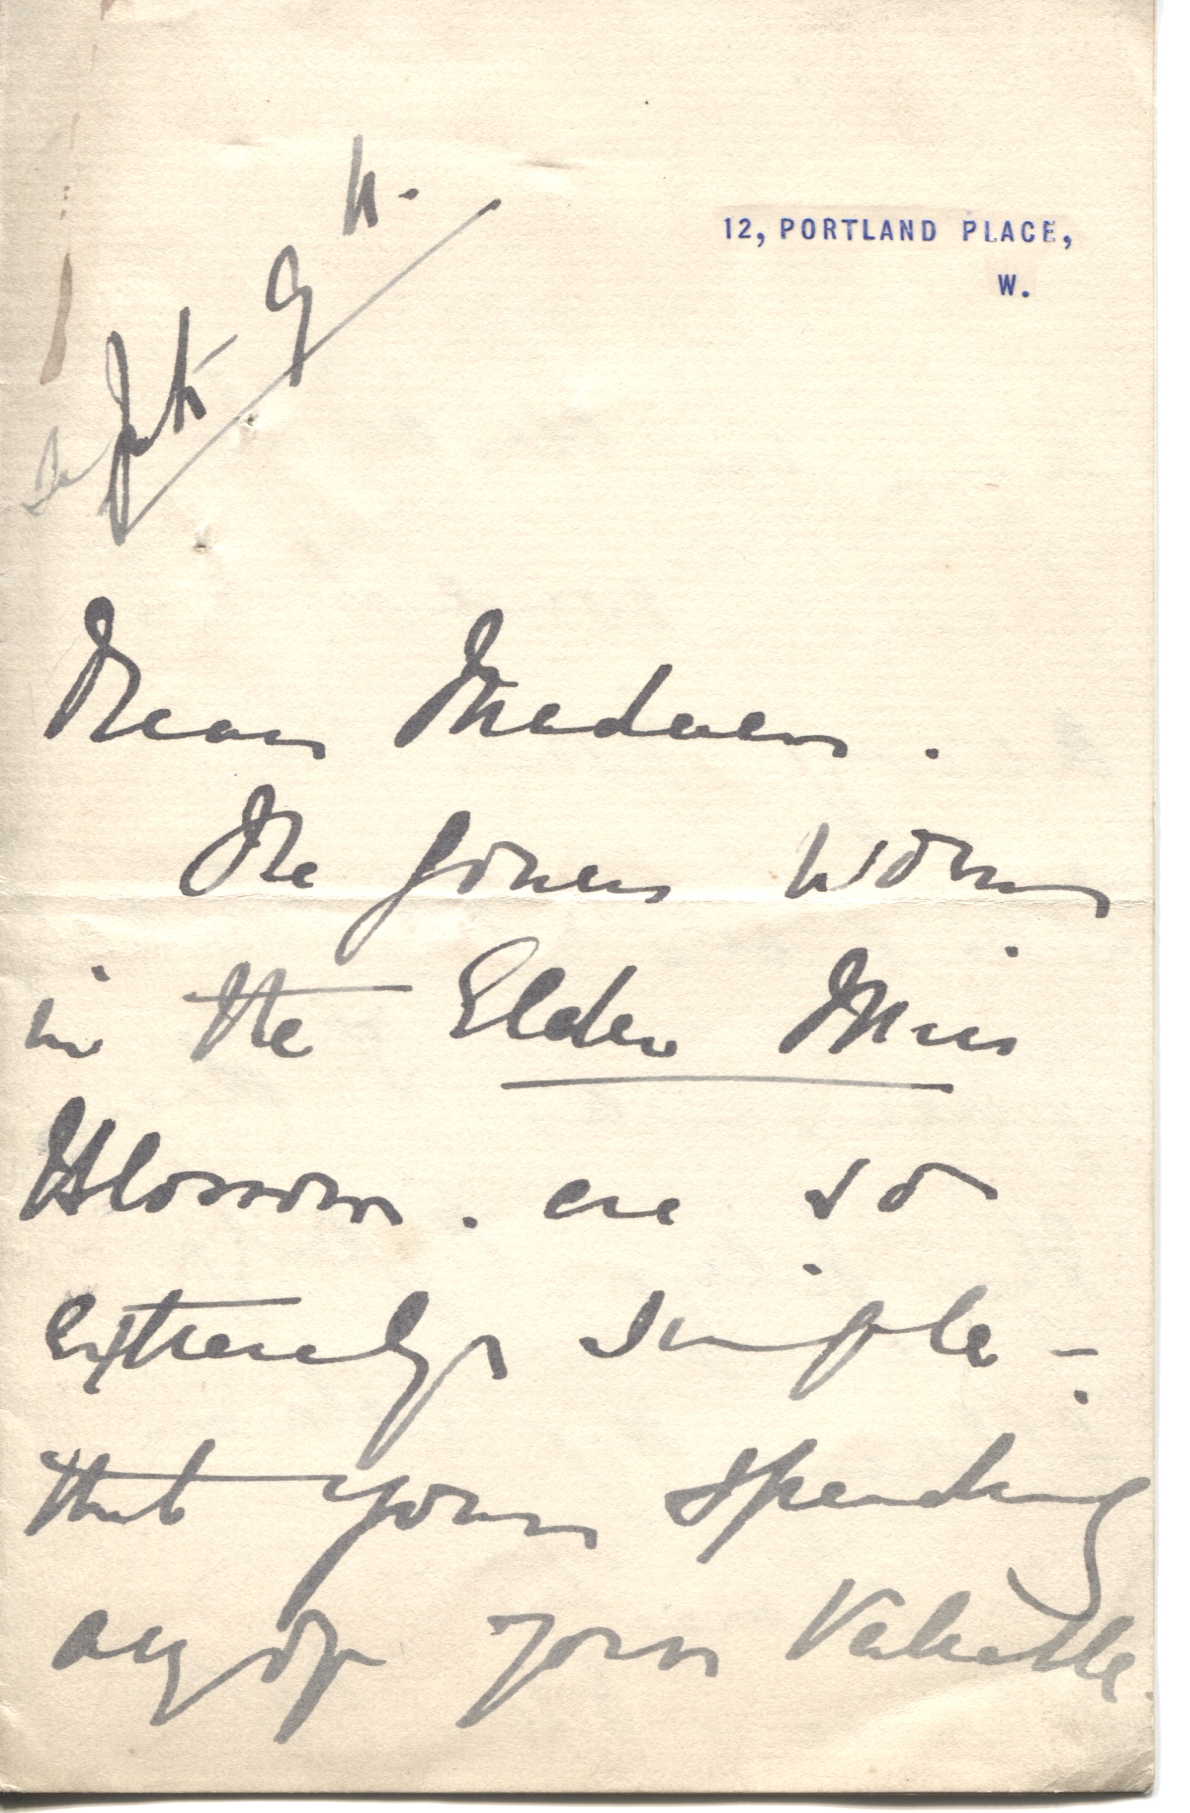 12, PORTLAND PLACE,
W.
July 9 h.
Dear Madam.
The gowns worn
in the Elder Miss
Blossom. are so
extremely simple -
that your spending
any of your Valuable